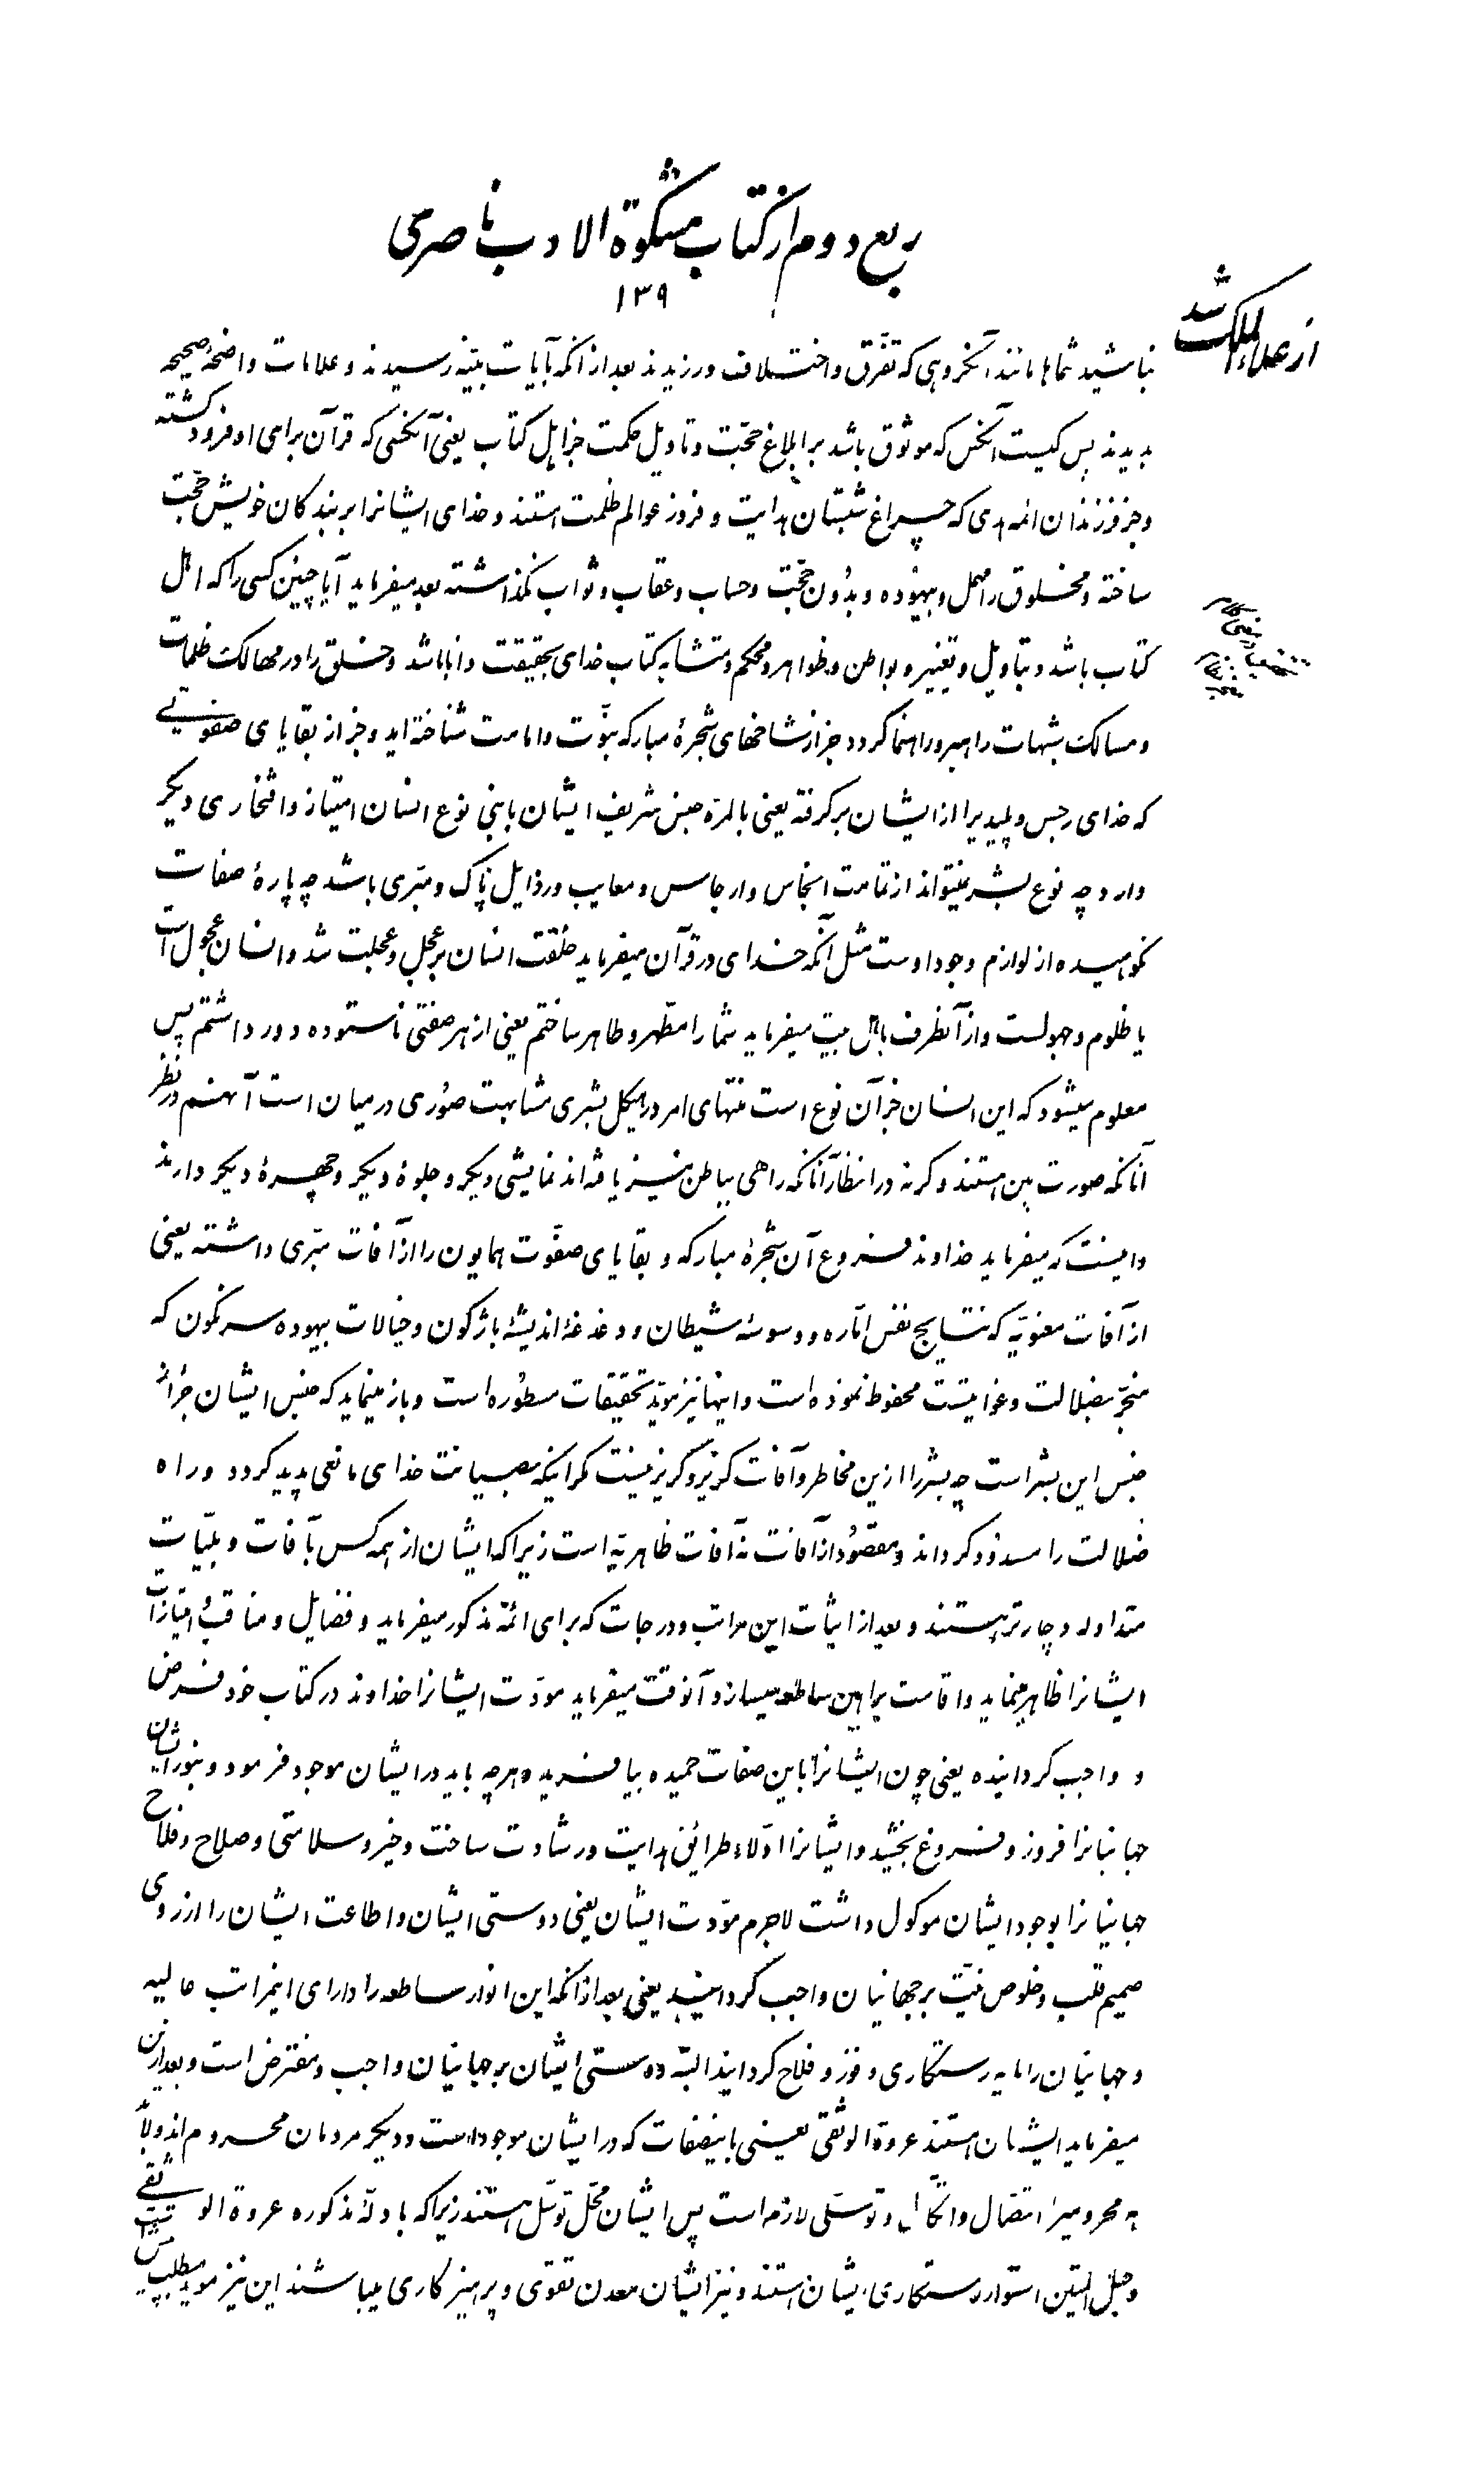 ربع دوم از کتاب مشکوة الادب ناصری
۱۳۹
از علاء الملک شد
نباشید شما ها مانند آنگروهی که تفرق و اختلاف ورزیدند بعد از آنکه بآیات بینه رسیدند و علامات واضحهٔ صحیحه
بدیدند پس کیست آنکس که موثوق باشد بر ابلاغ حجت و تاویل حکمت جز اهل کتاب یعنی آنکسی که قرآن برای او فرود گشته
و جز فرزندان ائمه هدی که چراغ شبستان هدایت و فروز عوالم ظلمت هستند و خدای ایشانرا بر بندگان خویش حجت
ساخته و مخلوق را مهمل و بیهوده و بدون حجت و حساب و عقاب و ثواب نگذاشته بعد میفرماید آیا چنین کسی را که اهل
کتاب باشد و بتاویل و تفسیر و بواطن و ظواهر و محکم و متشابه کتاب خدای بحقیقت دانا باشد و خلق را در مهالک ظلمات
و مسالک شبهات راهبر و راهنما گردد جز از شاخهای شجرهٔ مبارکه نبوت و امامت شناخته اید و جز از بقایای صفوتی
که خدای رجس و پلیدیرا از ایشان برگرفته یعنی بالمره جنس شریف ایشان با بنی نوع انسان امتیاز و افتخاری دیگر
دارد چه نوع بشر نمیتواند از تمامت انجاس و ارجاس و معایب و رذایل پاک و مبری باشد چه پارهٔ صفات
نکوهیده از لوازم وجود اوست مثل آنکه خدای در قرآن میفرماید خلقت انسان بر عجل و عجلت شد و انسان عجول است
یا ظلوم و جهولست و از آنطرف باهل بیت میفرماید شما را مطهر و طاهر ساختم یعنی از هر صفتی ناستوده دور داشتم پس
معلوم میشود که این انسان جز آن نوع است منتهای امر در هیکل بشری مشابهت صوری در میان است آنهم در نظر
آنانکه صورت بین هستند وگرنه در انظار آنانکه راهی بباطن نیز یافته‌اند نمایشی دیگر و جلوهٔ دیگر و چهرهٔ دیگر دارند
و اینست که میفرماید خداوند فروع آن شجرهٔ مبارکه و بقایای صفوت همایون را از آفات مبری داشته یعنی
از آفات معنویه که نتایج نفس اماره و وسوسهٔ شیطان و دغدغهٔ اندیشهٔ باژگون و خیالات بیهوده سرنگون که
منجر بضلالت و غوایتست محفوظ نموده است و اینها نیز موید تحقیقات مسطوره است و باز مینماید که جنس ایشان جز از
جنس این بشر است چه بشر را ازین مخاطر و آفات گزیر و گریز نیست مگر اینکه بصیانت خدای مانعی پدید گردد و راه
ضلالت را مسدود گرداند و مقصود از آفات نه آفات ظاهریه است زیرا که ایشان از همه کس بآفات و بلیات
متداوله دچارتر هستند و بعد از اثبات این مراتب و درجات که برای ائمه مذکور میفرماید و فضایل و مناقب و امتیازات
ایشانرا ظاهر مینماید و اقامت براهین ساطعه میسازد آنوقت میفرماید مودت ایشانرا خداوند در کتاب خود فرض
و واجب گردانیده یعنی چون ایشانرا باین صفات حمیده بیافرید و هر چه باید در ایشان موجود فرمود و بنور ایشان
جهانیانرا فروز و فروغ بخشید و ایشانرا ادلاء طرائق هدایت و رشادت ساخت و خیر و سلامتی و صلاح و فلاح
جهانیانرا بوجود ایشان موکول داشت لاجرم مودت ایشان یعنی دوستی ایشان و اطاعت ایشان را از روی
صمیم قلب و خلوص نیت بر جهانیان واجب گردانید یعنی بعد از آنکه این انوار ساطعه را دارای اینمراتب عالیه
و جهانیان را مایه رستگاری و فوز و فلاح گردانید البته دوستی ایشان بر جهانیان واجب و مفترض است و بعد از این
میفرماید ایشان هستند عروة الوثقی یعنی باینصفات که در ایشان موجود است و دیگر مردمان محرومند و لابد
به محرومیرا اتصال و اتکال و توسلی لازم است پس ایشان محل توسل هستند زیرا که بادلهٔ مذکوره عروة الوثقی
و حبل المتین استوار رستگاری ایشان هستند و نیز ایشان معدن تقوی و پرهیزکاری میباشند این نیز موید مطلب